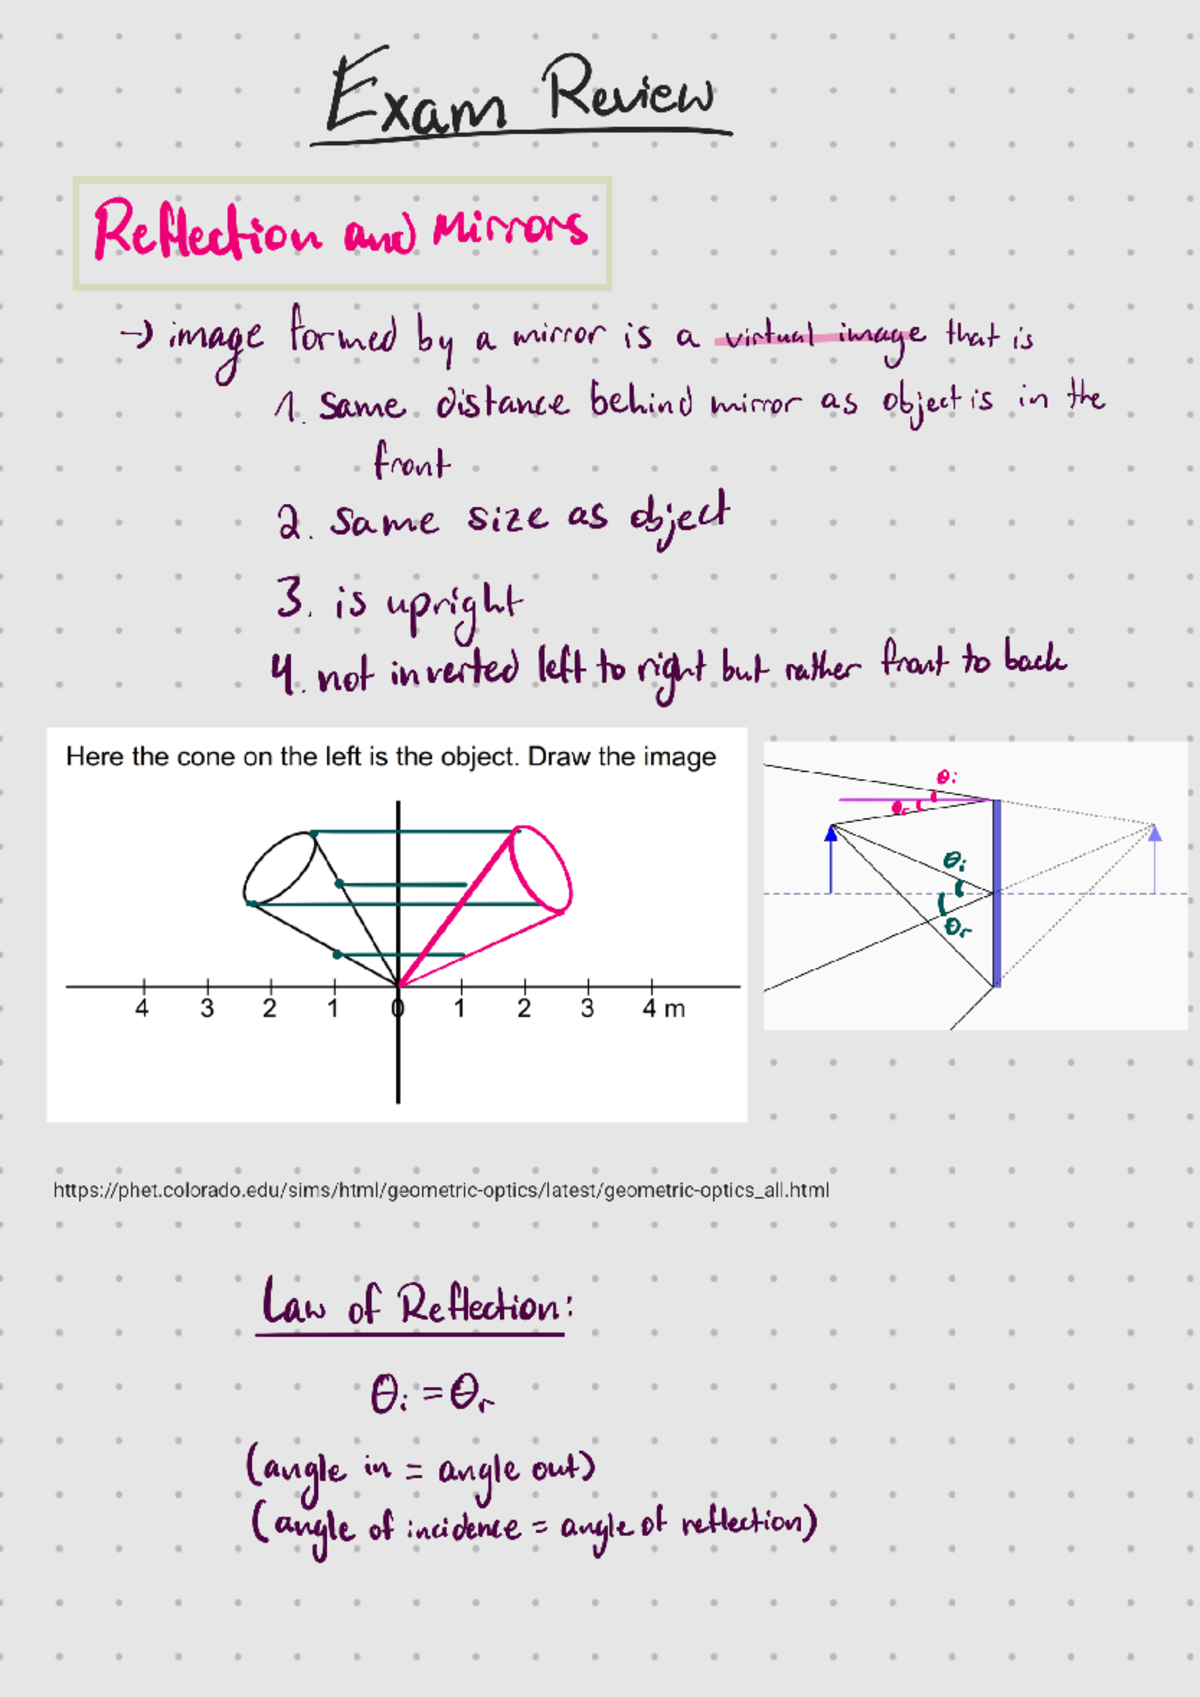 Exam Review
Reflection and Mirrors
→ image formed by a mirror is a virtual image that is
1. same distance behind mirror as object is in the
front
2. same size as object
3. is upright
4. not inverted left to right but rather front to back
Here the cone on the left is the object. Draw the image
4 3 2 1 0 1 2 3 4 m
θi
θr
θi
θr
https://phet.colorado.edu/sims/html/geometric-optics/latest/geometric-optics_all.html
Law of Reflection:
θi = θr
(angle in = angle out)
(angle of incidence = angle of reflection)